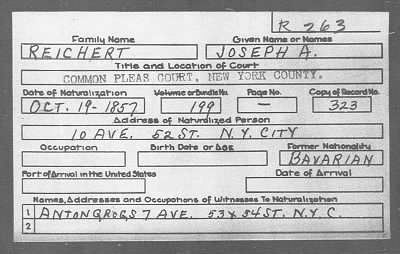 R 263
Family Name Given Name or Names
REICHERT JOSEPH A.
Title and Location of Court
COMMON PLEAS COURT, NEW YORK COUNTY.
Date of Naturalization Volume or Bundle No. Page No. Copy of Record No.
OCT. 19-1857 199 — 323
Address of Naturalized Person
10 AVE. 52 ST. N.Y. CITY
Occupation Birth Date or Age Former Nationality
BAVARIAN
Port of Arrival in the United States Date of Arrival
Names, Addresses and Occupations of Witnesses To Naturalization
1 ANTON GROGS 7 AVE. 53 X 54 ST. N.Y.C.
2